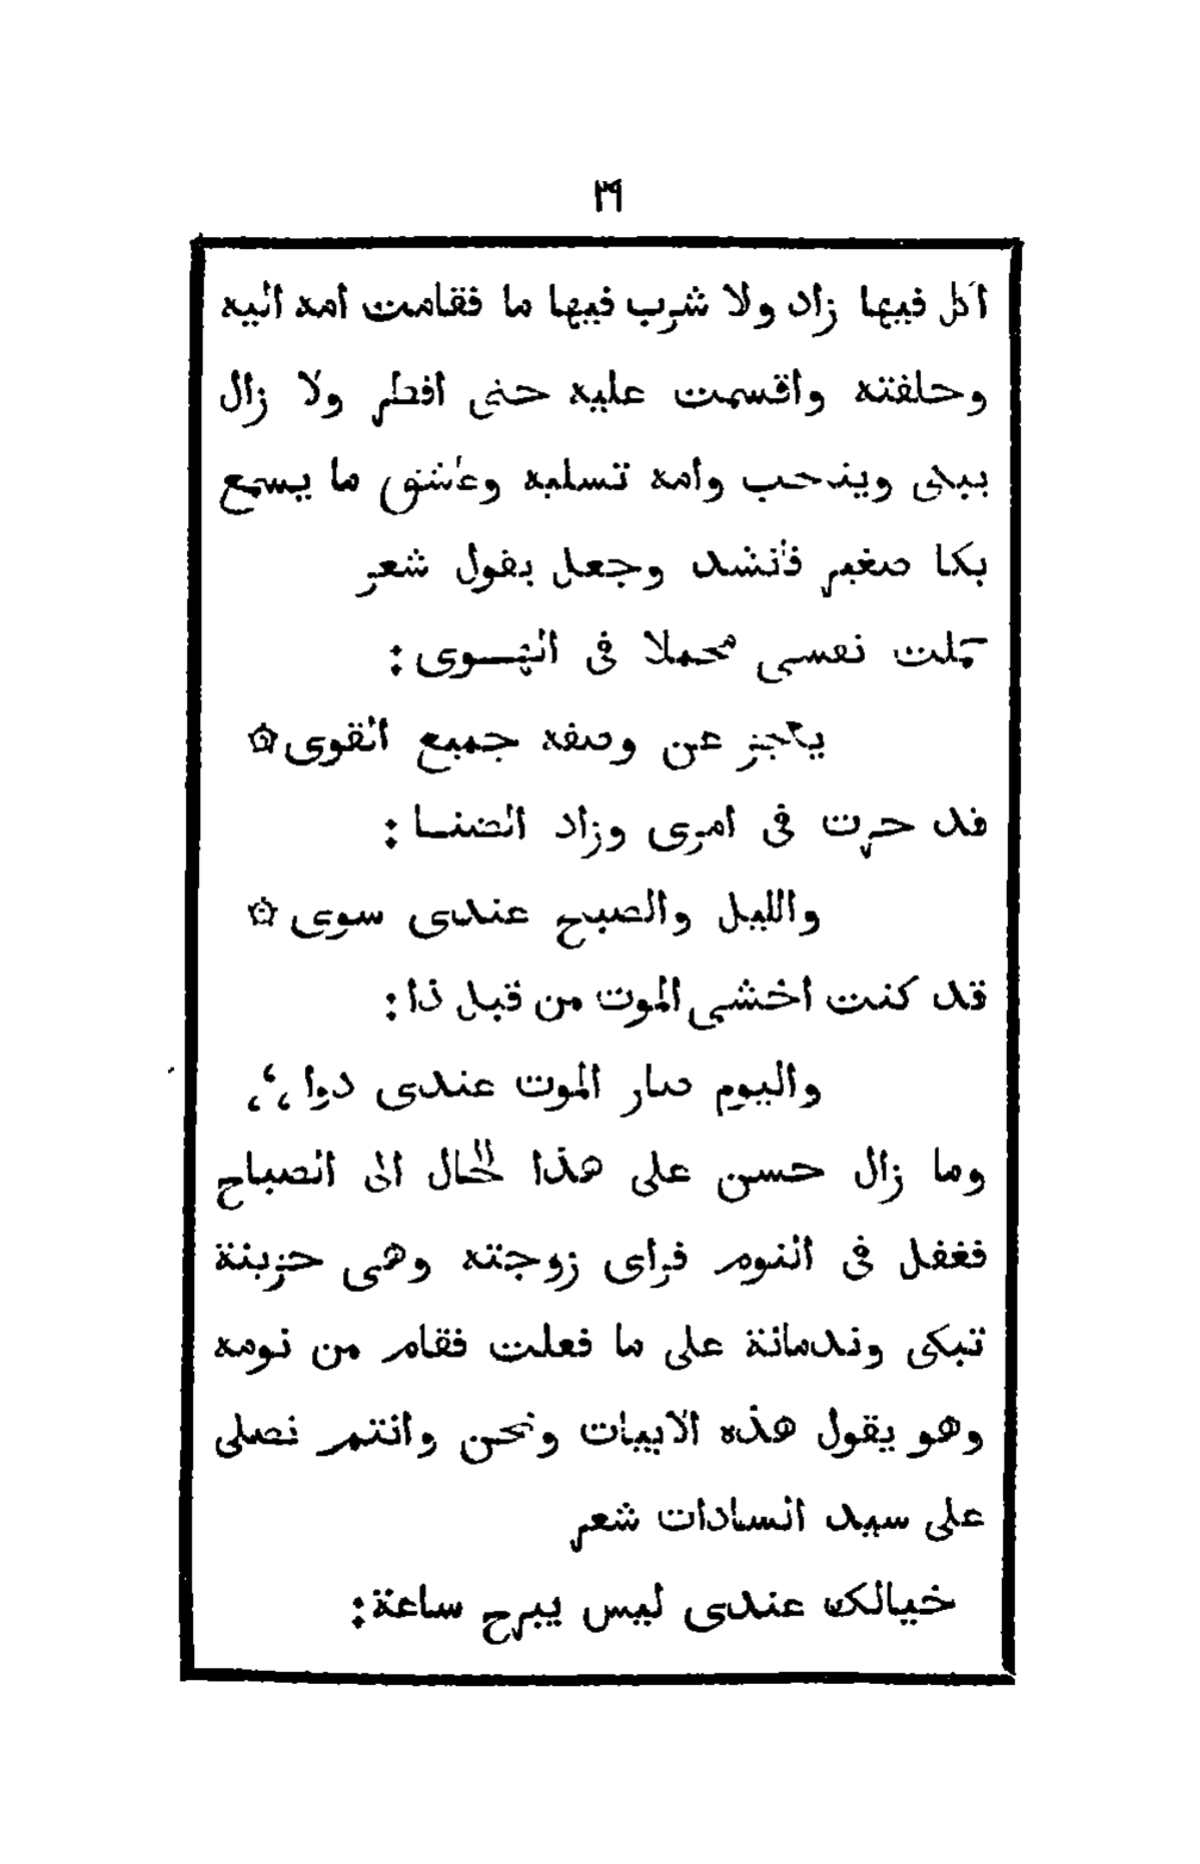 ٢٩
اكل فيها زاد ولا شرب فيها ما فقامت امه اليه
وحلفته واقسمت عليه حتى افطر ولا زال
يبكى وينحب وامه تسليه وعاشق ما يسمع
بكا صغير فانشد وجعل يقول شعر
حملت نفسى محملا فى الهـوى :
يعجز عن وصفه جميع القوى ۞
قد حرت فى امرى وزاد الضنـا :
والليل والصبح عندى سوى ۞
قد كنت اخشى الموت من قبل ذا :
واليوم صار الموت عندى دوا ،‘،
وما زال حسن على هذا الحال الى الصباح
فغفل فى النوم فراى زوجته وهى حزينة
تبكى وندمانة على ما فعلت فقام من نومه
وهو يقول هذه الابيات ونحن وانتم نصلى
على سيد السادات شعر
خيالك عندى ليس يبرح ساعة :